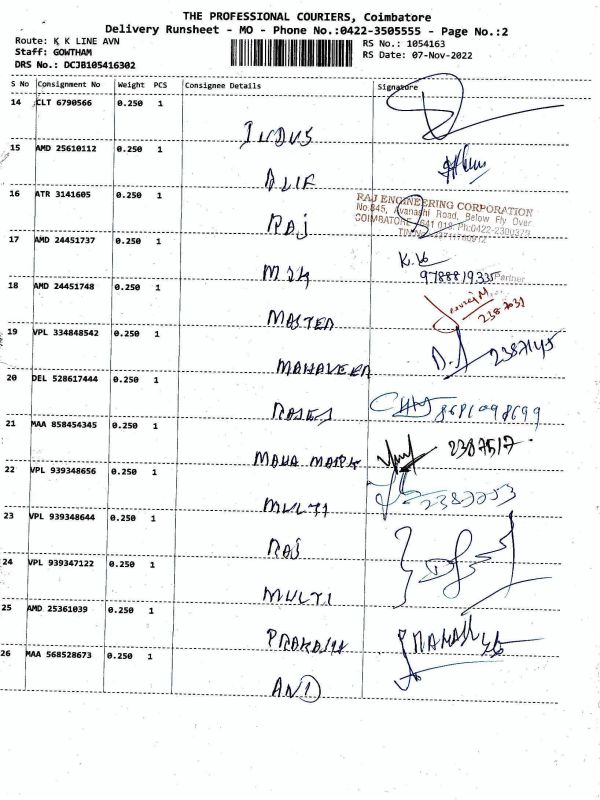 THE PROFESSIONAL COURIERS, Coimbatore
Delivery Runsheet - MO - Phone No.:0422-3505555 - Page No.:2
Route: K K LINE AVN
RS No.: 1054163
Staff: GOWTHAM
RS Date: 07-Nov-2022
DRS No.: DCJB105416302
S No Consignment No Weight PCS Consignee Details Signature
14 CLT 6790566 0.250 1
INDUS
15 AMD 25610112 0.250 1
ALIF
16 ATR 3141605 0.250 1
RAJ ENGINEERING CORPORATION
No.845, Avanashi Road, Below Fly Over
COIMBATORE - 641 018. Ph:0422-2300379
RAJ
17 AMD 24451737 0.250 1
K.K
9788819335 Partner
18 AMD 24451748 0.250 1
2387031
MASTER
19 VPL 334848542 0.250 1
2387145
MAHAVEER
20 DEL 528617444 0.250 1
8681098699
21 MAA 858454345 0.250 1
2387517
MAHA
22 VPL 939348656 0.250 1
MULTI
23 VPL 939348644 0.250 1
RAJ
24 VPL 939347122 0.250 1
MULTI
25 AMD 25361039 0.250 1
PRAKASH
26 MAA 568528673 0.250 1